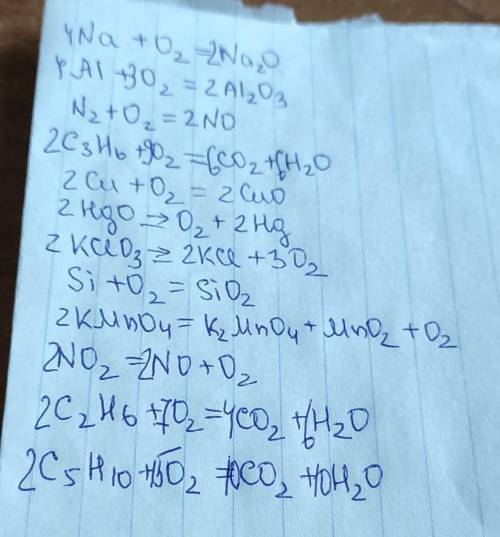 4Na + O₂ = 2Na₂O
4Al + 3O₂ = 2Al₂O₃
N₂ + O₂ = 2NO
2C₃H₆ + 9O₂ = 6CO₂ + 6H₂O
2Cu + O₂ = 2CuO
2HgO = O₂ + 2Hg
2KClO₃ = 2KCl + 3O₂
Si + O₂ = SiO₂
2KMnO₄ = K₂MnO₄ + MnO₂ + O₂
2NO₂ = 2NO + O₂
2C₂H₆ + 7O₂ = 4CO₂ + 6H₂O
2C₅H₁₀ + 15O₂ = 10CO₂ + 10H₂O